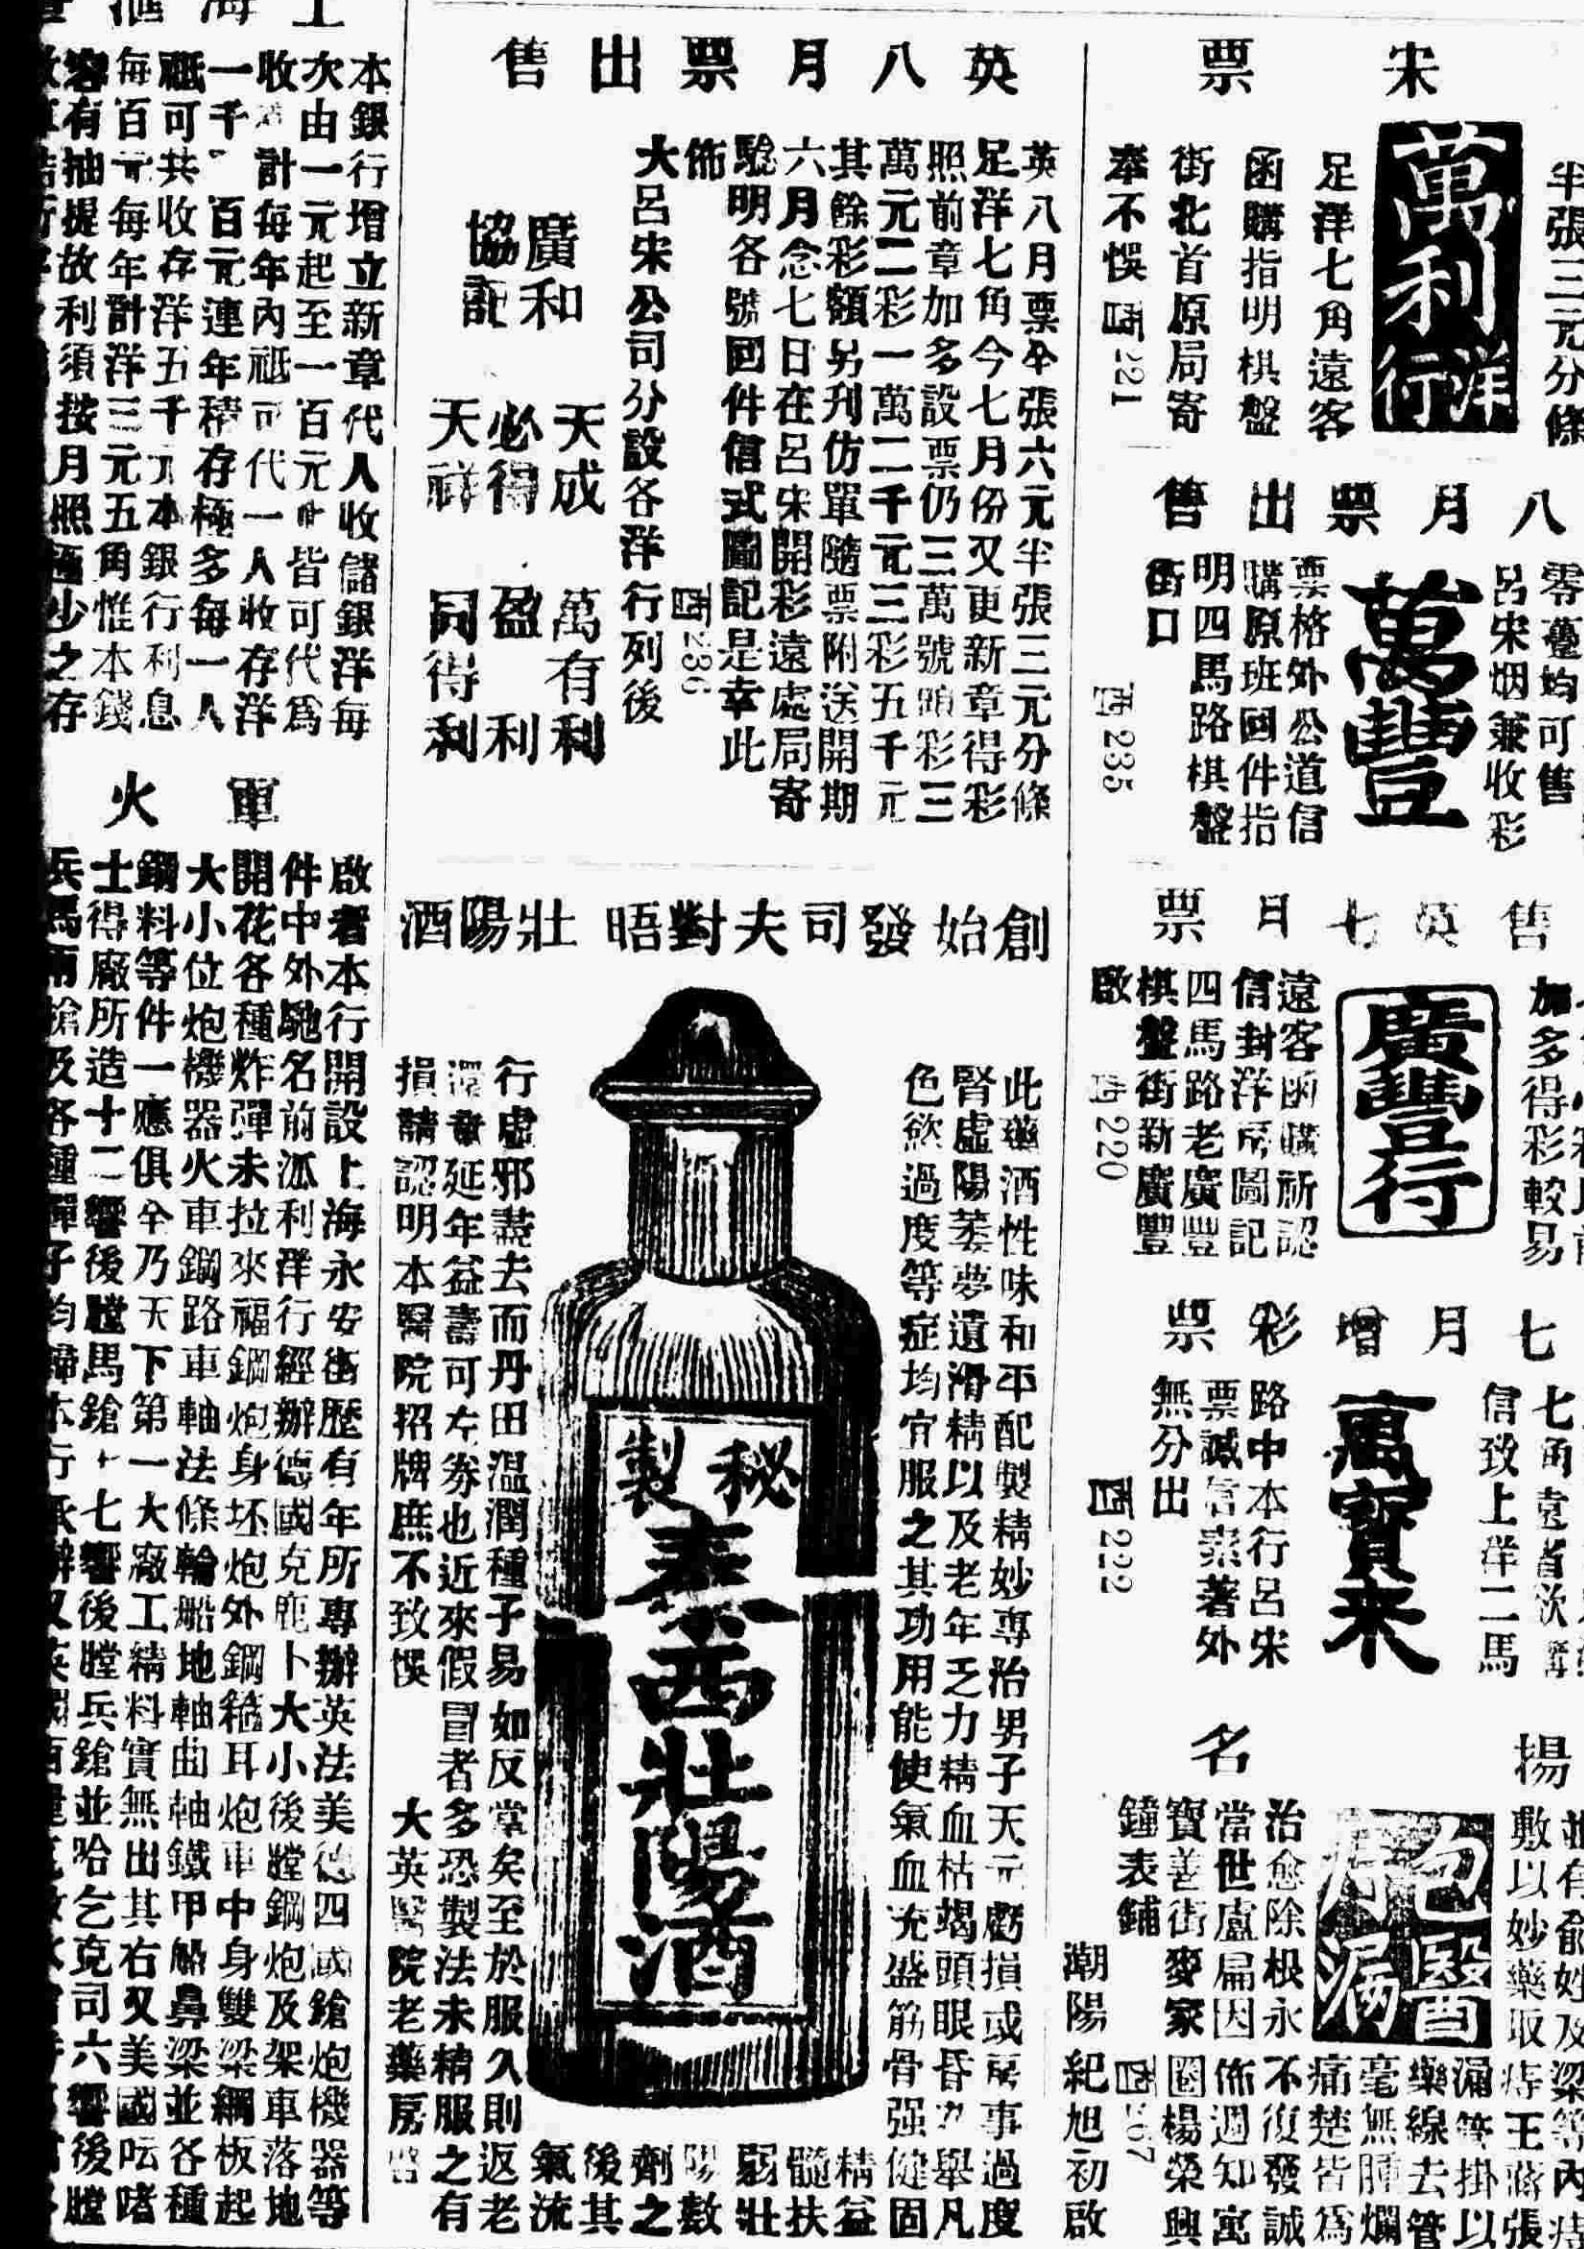 宋票
半張三元分條
萬利洋行
足洋七角遠客
函購指明棋盤
街北首原局寄
奉不悞
酉221
八月票出售
零躉均可售
呂宋烟兼收彩
萬豐
票格外公道信
購原班回件指
明四馬路棋盤
街口
酉235
售英七月票
加多得彩較易
廣豐行
遠客函購祈認
信封洋房圖記
四馬路老廣豐
棋盤街新廣豐
啟
220
七月增彩票
七角遠者欲購
信致上洋二馬
萬寶來
路中本行呂宋
票誠信素著外
無分出
酉222
揚名
並有俞姓及梁等內痔
敷以妙藥取痔王蔣張
漏管掛以
藥線去管
包醫
漏
毫無腫爛
痛楚皆為
治愈除根永不復發誠
當世盧扁因佈週知寓
寶善街麥家圈楊榮興
鐘表鋪
67
潮陽紀旭初啟
英八月票出售
英八月票全張六元半張三元分條
足洋七角今七月份又更新章得彩
照前章加多設票仍三萬號頭彩三
萬元二彩一萬二千元三彩五千元
其餘彩額另刋仿單隨票附送開期
六月念七日在呂宋開彩遠處局寄
騐明各號回件信式圖記是幸此
佈
酉236
大呂宋公司分設各洋行列後
廣和 天成 萬有利
必得 盈利
協記 天祥 同得利
創始發司夫對晤壯陽酒
此藥酒性味和平配製精妙專治男子天元虧損或房事過度
腎虛陽萎夢遺滑精以及老年乏力精血枯竭頭眼昏九舉凡
色慾過度等症均宜服之其功用能使氣血充盛筋骨强健固
精益
髓扶
弱壯
陽數
劑之
後其
氣流
秘製
泰西壯陽酒
行虛邪蓋去而丹田温潤種子易如反掌矣至於服久則返老
還童延年益壽可左劵也近來假冒者多恐製法未精服之有
損請認明本醫院招牌庶不致悞
大英醫院老藥房啓
上海滙
本銀行增立新章代人收儲銀洋每
次由一元起至一百元止皆可代為
收 計每年內祗可代一人收存洋
一千 百元連年積存極多每一人
祗可共收存洋五千元本銀行利息
每百元每年計洋三元五角惟本錢
容有抽提故利須按月照極少之存
軍火
啟者本行開設上海永安街歷有年所專辦英法美德四國鎗炮機器等
件中外馳名前泒利洋行經辦德國克鹿卜大小後膛鋼炮及架車落地
開花各種炸彈未拉來福鋼炮身坯炮外鋼箍耳炮車中身雙梁綱板起
大小位炮機器火車鋼路車軸法條輪船地軸曲軸鐵甲船鼻梁並各種
鋼料等件一應俱全乃天下第一大廠工精料實無出其右又美國呍啫
士得廠所造十二響後膛馬鎗十七響後膛兵鎗並哈乞克司六響後膛